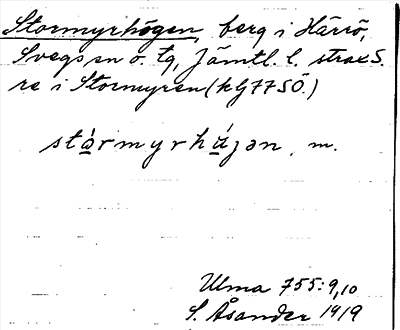 Stormyrhögen, berg i Härrö,
Svegs sn o. tg, Jämtl. l. strax S.
re i Stormyren (kg77SÖ.)
stårmyrhåʒən, m.
Ulma 755:9,10
S. Åsander 1919